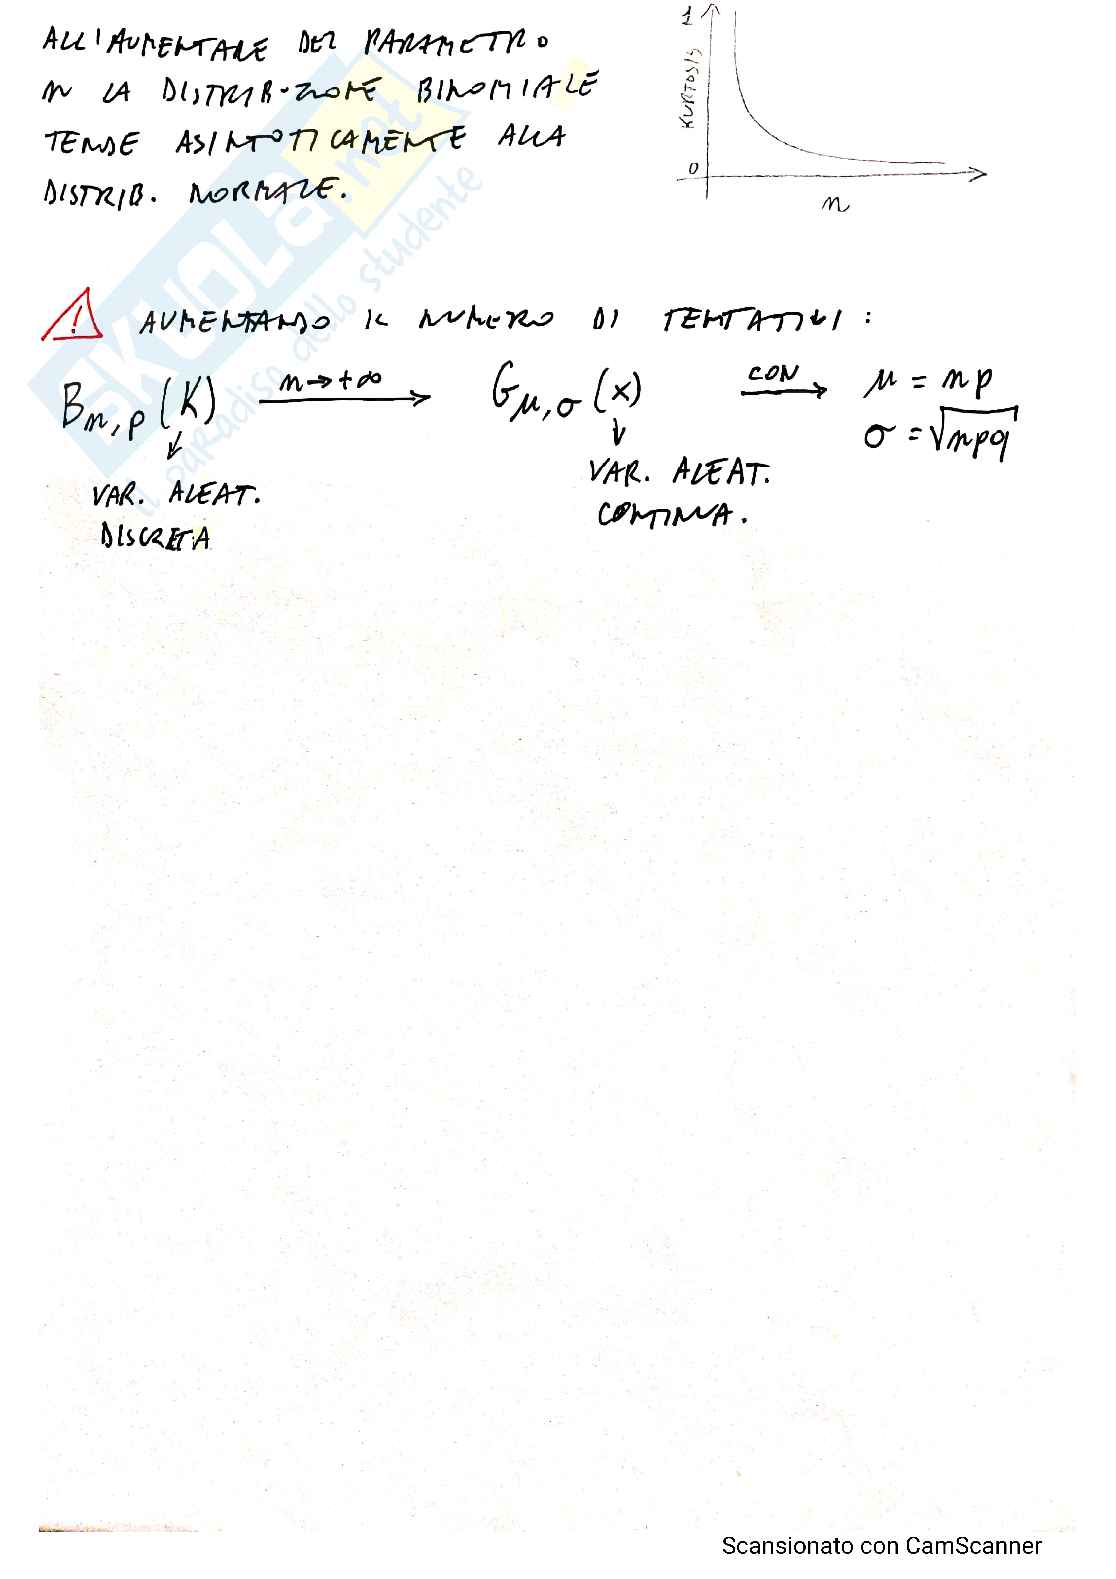 ALL'AUMENTARE DEL PARAMETRO
n LA DISTRIBUZIONE BINOMIALE
TENDE ASINTOTICAMENTE ALLA
DISTRIB. NORMALE.
1
KURTOSIS
0
n
SKUOLA.net
il paradiso dello studente
! AUMENTANDO IL NUMERO DI TENTATIVI:
B_{n,p}(K) n→+∞ G_{μ,σ}(x) CON μ = np
σ = √npq
VAR. ALEAT.
DISCRETA
VAR. ALEAT.
CONTINUA.
Scansionato con CamScanner